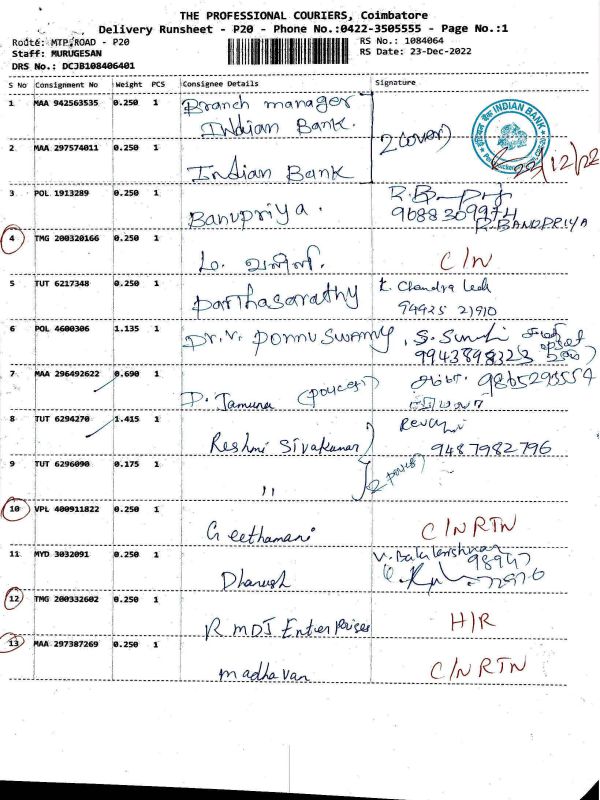 THE PROFESSIONAL COURIERS, Coimbatore
Delivery Runsheet - P20 - Phone No.:0422-3505555 - Page No.:1
Route: MTP ROAD - P20
RS No.: 1084064
Staff: MURUGESAN
RS Date: 23-Dec-2022
DRS No.: DCJB108406401
S No Consignment No Weight PCS Consignee Details Signature
1 MAA 942563535 0.250 1 Branch manager
Indian Bank.
INDIAN BANK
2 (cover)
22/12/22
2 MAA 297574011 0.250 1
Indian Bank
3 POL 1913289 0.250 1
Banupriya.
9688309974
R.BANUPRIYA
4 TMG 200320166 0.250 1
C/N
5 TUT 6217348 0.250 1
Parthasarathy
K. Chandra Leela
94425 21910
6 POL 4600306 1.135 1
Dr.V. Ponnuswamy
9943898323
7 MAA 296492622 0.690 1
D. Jamuna
9865293554
8 TUT 6294270 1.415 1
Reshmi Sivakumar
Revathi
9487982796
9 TUT 6296090 0.175 1
"
10 VPL 400911822 0.250 1
Geethamani
C/N RTN
11 MYD 3032091 0.250 1
Dhanush
V. Balakrishnan
12 TMG 200332602 0.250 1
R MDJ Enterprises
H/R
13 MAA 297387269 0.250 1
madhavan
C/N RTN